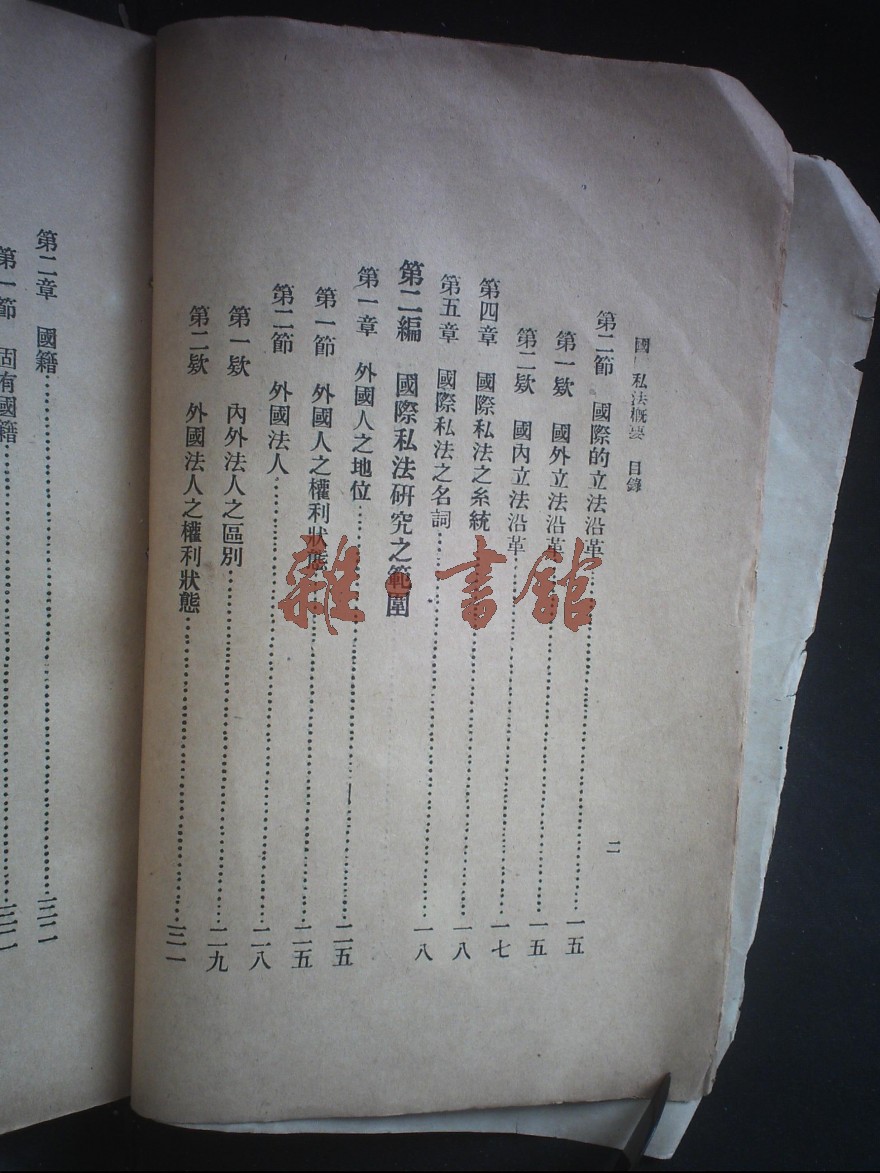 國 私法概要 目錄
二
第二節 國際的立法沿革……一五
第一欵 國外立法沿革……一五
第二欵 國內立法沿革……一七
第四章 國際私法之系統……一八
第五章 國際私法之名詞……一八
第二編 國際私法研究之範圍
第一章 外國人之地位……二五
第一節 外國人之權利狀態……二五
第二節 外國法人……二八
第一欵 內外法人之區別……二九
第二欵 外國法人之權利狀態……三一
第二章 國籍……三二
第一節 固有國籍……三二
雜 書館